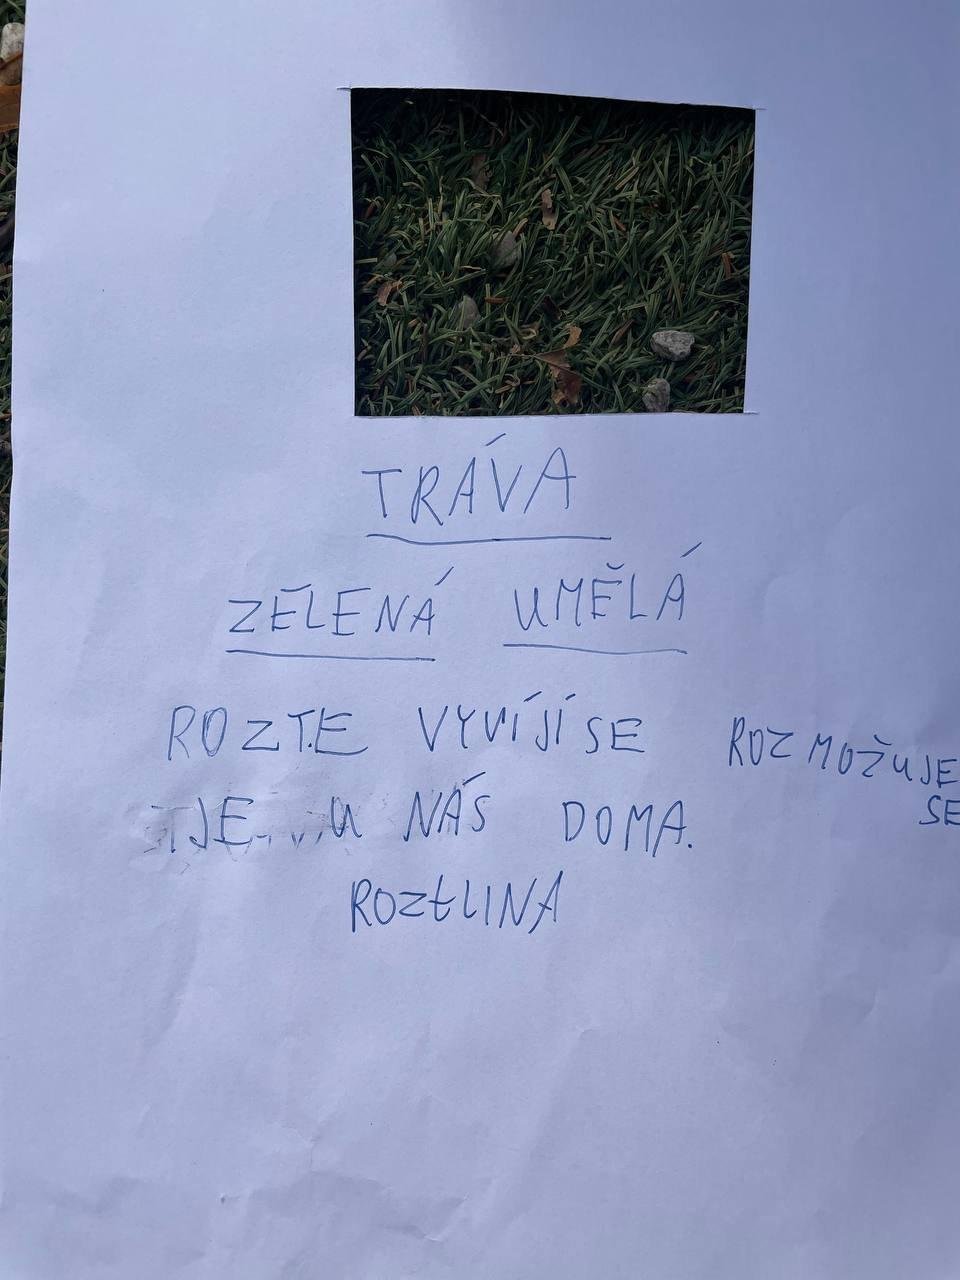 TRÁVA
ZELENÁ UMĚLÁ
ROZTE VYVÍJÍ SE ROZMOŽUJE
SE
JE U NÁS DOMA.
ROZTLINA